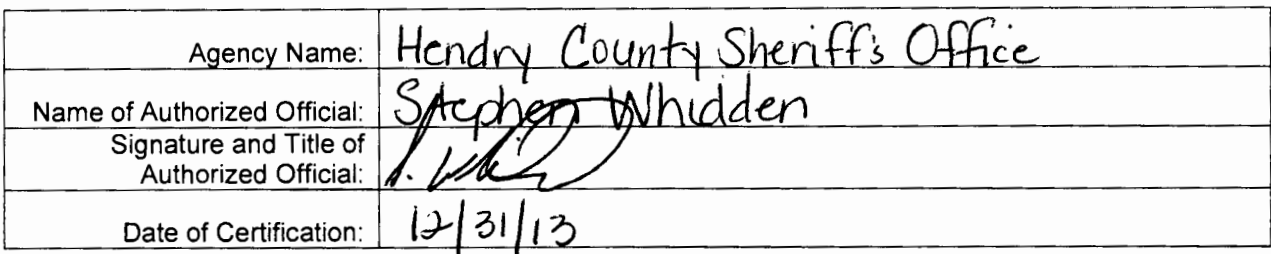 Agency Name: Hendry County Sheriff's Office
Name of Authorized Official: Stephen Whidden
Signature and Title of
Authorized Official:
Date of Certification: 12/31/13